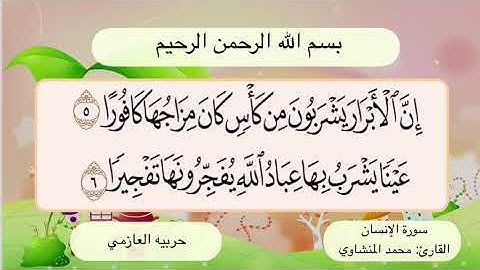 بسم الله الرحمن الرحيم
إِنَّ ٱلۡأَبۡرَارَ يَشۡرَبُونَ مِن كَأۡسٖ كَانَ مِزَاجُهَا كَافُورًا ٥
عَيۡنٗا يَشۡرَبُ بِهَا عِبَادُ ٱللَّهِ يُفَجِّرُونَهَا تَفۡجِيرٗا ٦
سورة الإنسان
القارئ: محمد المنشاوي
حربيه العازمي